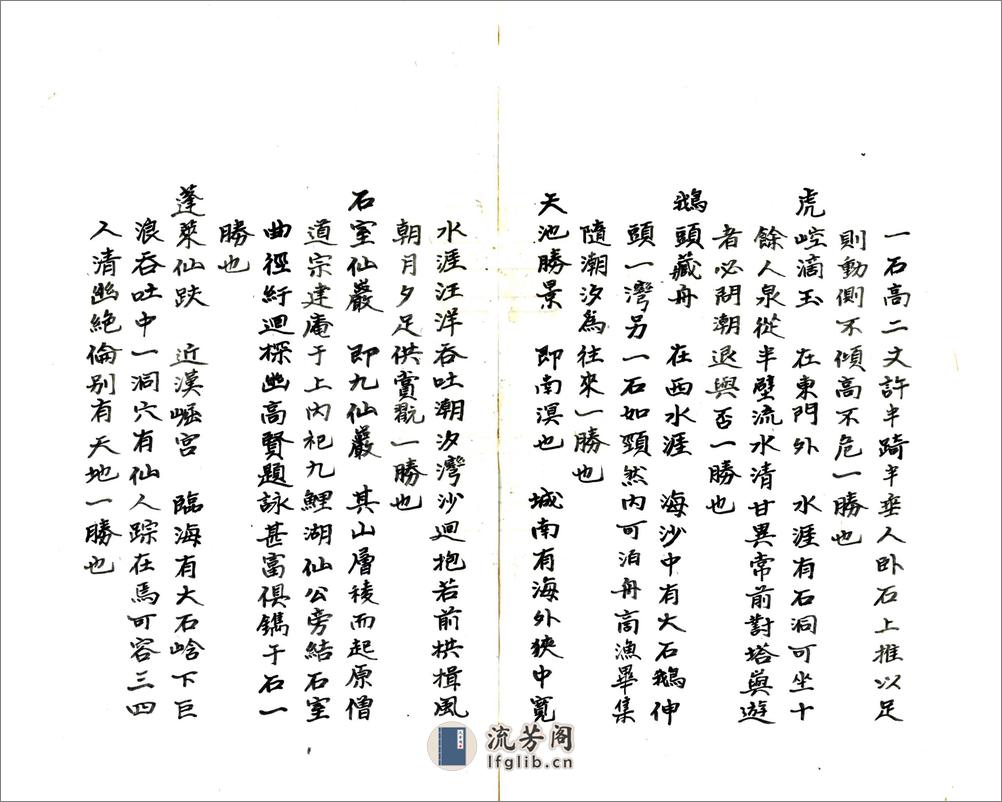 一石高二丈許半跨半垂人卧石上推以足
則動側不傾高不危一勝也
虎崆滴玉　在東門外　水涯有石洞可坐十
餘人泉從半壁流水清甘異常前對塔與遊
者必問潮退與否一勝也
鵝頭藏舟　在西水涯　海沙中有大石鵝伸
頭一灣另一石如頸然内可泊舟高漁畢集
隨潮汐為往來一勝也
天池勝景　即南溟也　城南有海外狹中寬
水涯汪洋吞吐潮汐灣沙迴抱若前栱楫風
朝月夕足供賞翫一勝也
石室仙巖　即九仙巖　其山層稜而起原僧
道宗建庵于上内祀九鯉湖仙公旁結石室
曲徑紆迴探幽高賢題詠甚富俱鐫于石一
勝也
蓬萊仙趺　近漢崛宮　臨海有大石崆下巨
浪吞吐中一洞穴有仙人踪在焉可容三四
人清幽絶倫别有天地一勝也
流芳阁
lfglib.cn